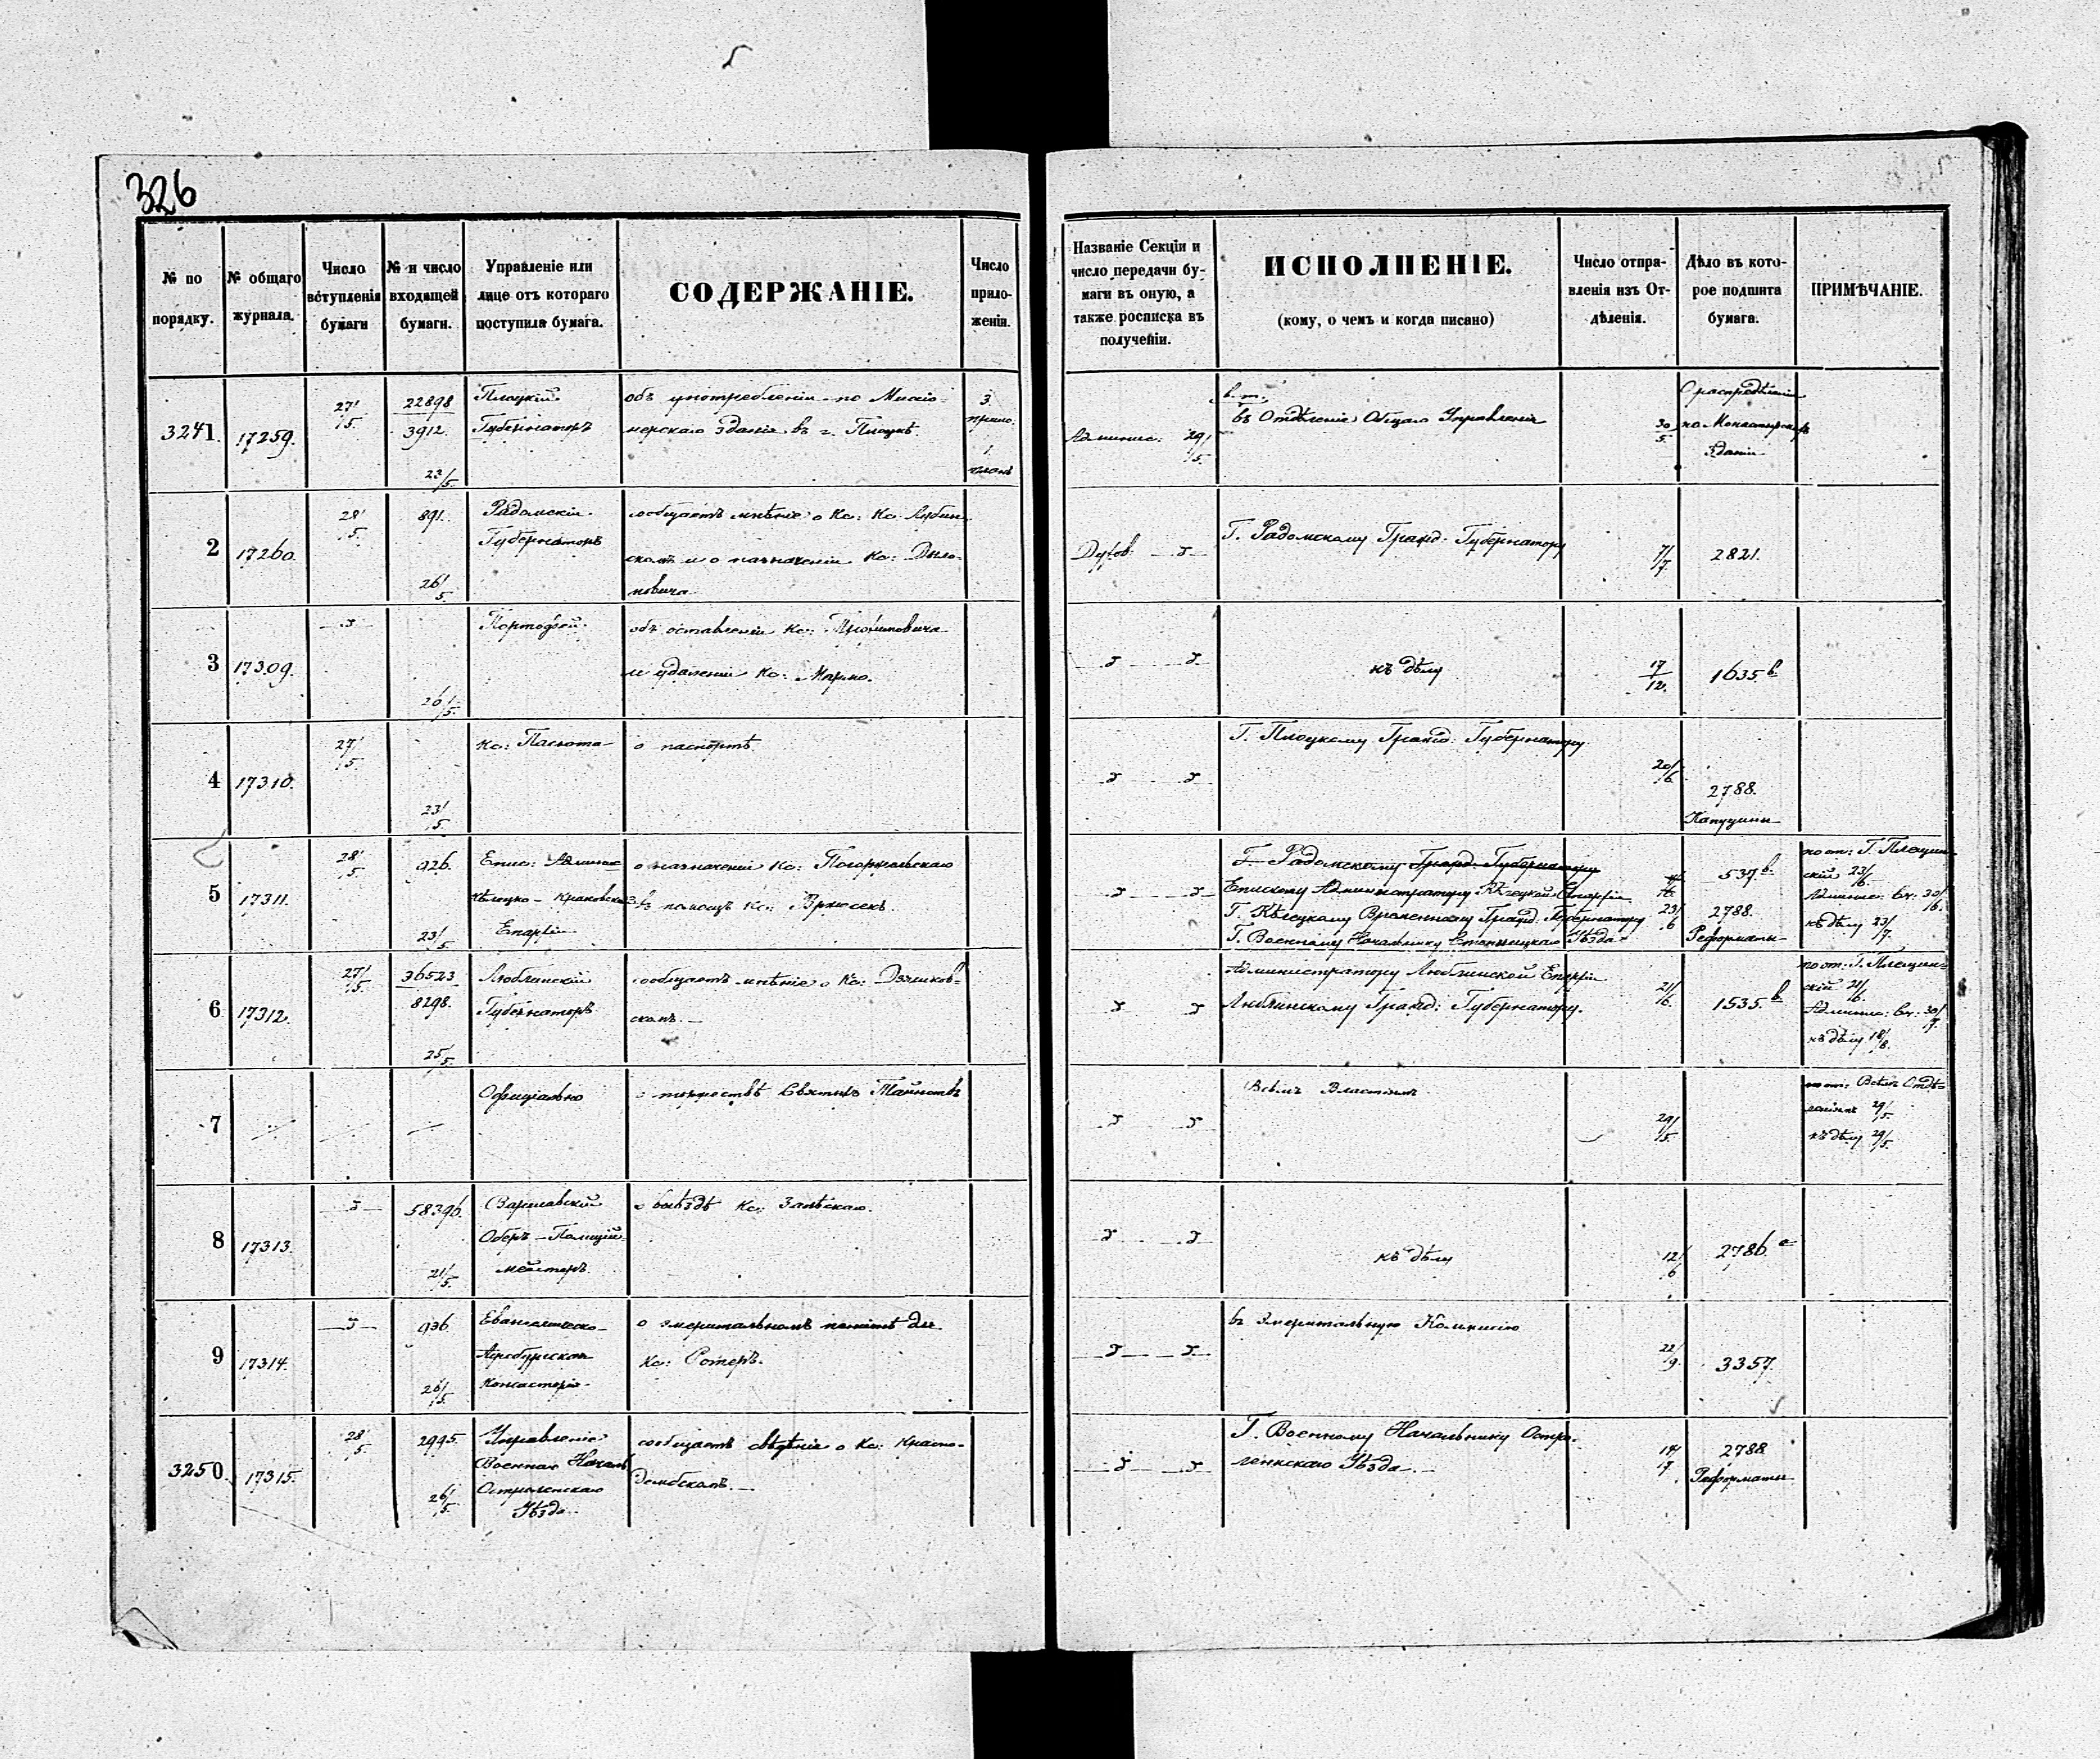 326
№ по порядку.
№ общаго журнала.
Число вступленія бумаги
№ и число входящей бумаги.
Управленіе или лице отъ котораго поступила бумага.
СОДЕРЖАНІЕ.
Число приложеній.
Названіе Секціи и число передачи бумаги въ оную, а также росписка въ полученіи.
ИСПОЛНЕНІЕ.
(кому, о чемъ и когда писано)
Число отправленія изъ Отдѣленія.
Дѣло въ которое подшита бумага.
ПРИМѢЧАНІЕ.
3241. 17259. 27/5 22898 Плоцкій объ употребленіи по
3912. Губернаторъ зданія въ г. Плоцкѣ.
23/5.
3.
1.
29/5.
въ Отдѣленіе Общаго Управленія
30/5.
О распредѣленіи
по
зданій
2 17260. 28/5. 891. Радомскій сообщаетъ мнѣніе о Кс: Кс:
Губернаторъ и о назначеніи Кс:
26/5.
Духов.
Г. Радомскому Гражд: Губернатору
7/7. 2821.
3 17309.
объ оставленіи Кс:
и удаленіи Кс:
26/5.
къ дѣлу
17/12. 1635 в
4 17310. 27/5. Кс: о паспортѣ
23/5.
Г. Плоцкому Гражд: Губернатору
20/6. 2788.
Капуцины
5 17311. 28/5. 926. Епис: о назначеніи Кс:
Кѣлецко-Краковской въ помощь Кс:
23/5 Епархіи
Г. Радомскому Гражд: Губернатору
Епископу Администратору Кѣлецкой Епархіи
Г. Кѣлецкому Гражд: Губернатору
Г. Военному Начальнику Уѣзда
23/6
537 в
2788.
Реформаты
къ дѣлу 23/7.
6 17312. 27/5. 36523 Люблинскій сообщаетъ мнѣніе о Кс:
8298. Губернаторъ
25/5.
Администратору Люблинской Епархіи
Люблинскому Гражд: Губернатору.
21/6. 1535 в
21/6.
къ дѣлу 18/8.
7 Офиціально о Святыхъ
Всѣмъ Властямъ
29/5.
29/5.
къ дѣлу 29/5.
8 17313. 58396. Варшавскій о выѣздѣ Кс: Залѣскаго.
Оберъ-Полицій-
21/5. мейстеръ.
къ дѣлу
12/6 2786
9 17314. 936. Евангелическо- о эмеритальномъ
Аугсбургская Кс: Ротеръ.
26/5. Консисторія
въ Эмеритальную Коммисію
22/9. 3357.
3250. 17315. 28/5 2995. Управленіе сообщаетъ свѣдѣнія о Кс: Красно-
Военнаго Началь. дембскомъ.
Остроленскаго
26/5. Уѣзда
Г. Военному Начальнику Остро-
ленскаго Уѣзда.
14/7. 2788
Реформаты